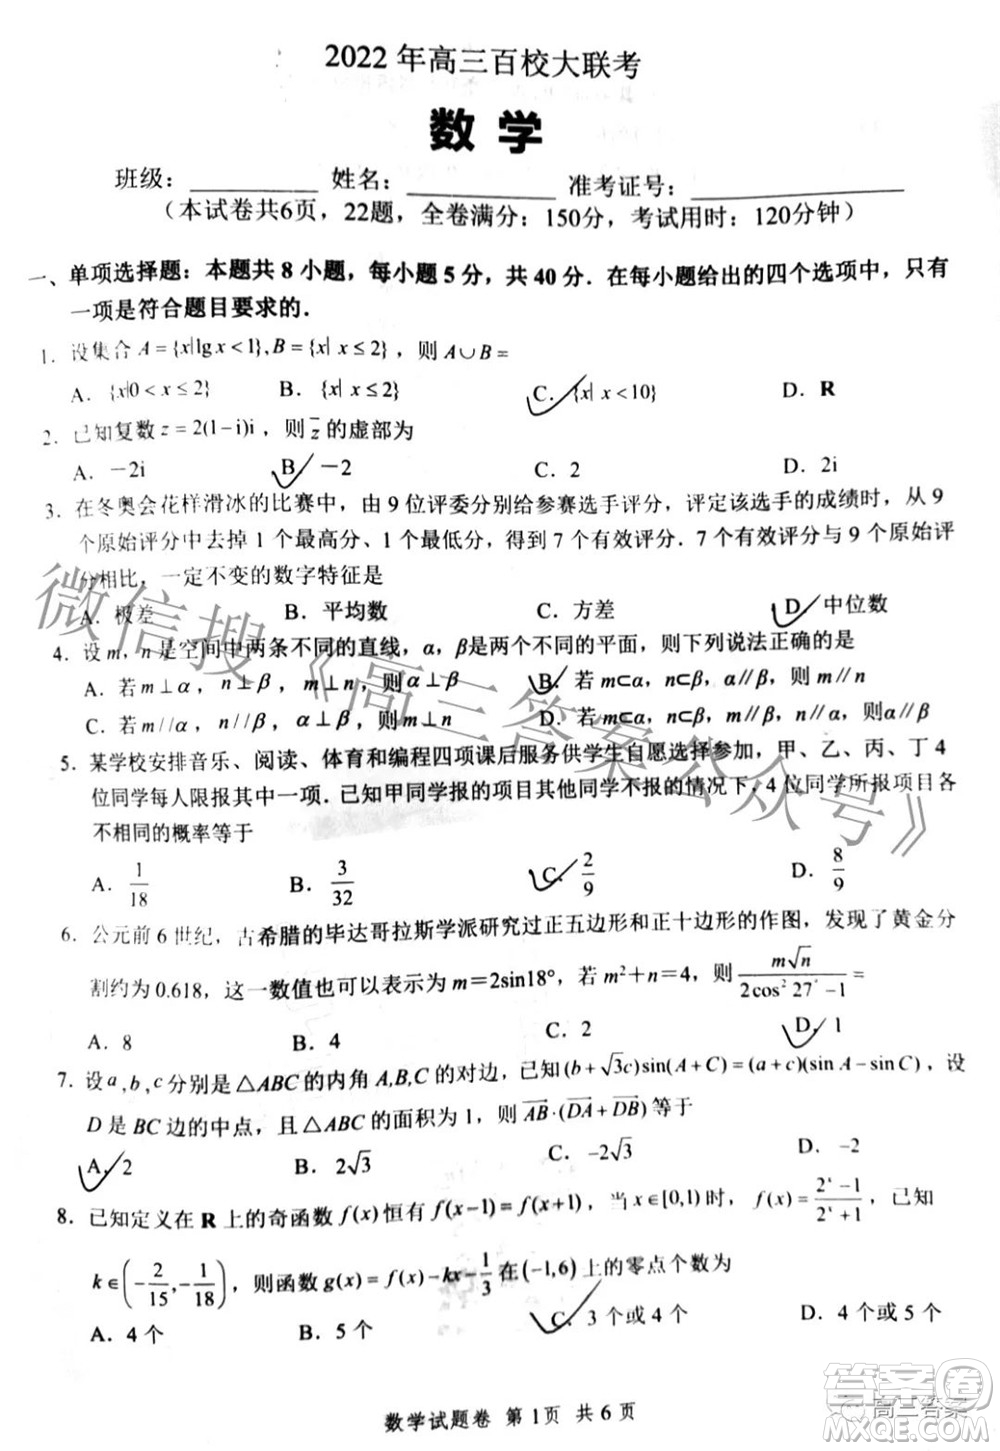 2022 年高三百校大联考
数 学
班级：________ 姓名：__________ 准考证号：______________
（本试卷共6页，22题，全卷满分：150分，考试用时：120分钟）
一、单项选择题：本题共 8 小题，每小题 5 分，共 40 分．在每小题给出的四个选项中，只有
一项是符合题目要求的．
1. 设集合 A={x|lg x<1},B={x| x≤2}，则 A∪B=
A．{x|0<x≤2} B．{x| x≤2} C．{x| x<10} D．R
2. 已知复数 z=2(1-i)i，则 z̄ 的虚部为
A．-2i B．-2 C．2 D．2i
3. 在冬奥会花样滑冰的比赛中，由 9 位评委分别给参赛选手评分，评定该选手的成绩时，从 9
个原始评分中去掉 1 个最高分、1 个最低分，得到 7 个有效评分．7 个有效评分与 9 个原始评
分相比，一定不变的数字特征是
A．极差 B．平均数 C．方差 D．中位数
4. 设 m，n 是空间中两条不同的直线，α，β是两个不同的平面，则下列说法正确的是
A．若 m⊥α，n⊥β，m⊥n，则α⊥β B．若 m⊂α，n⊂β，α∥β，则 m∥n
C．若 m//α，n//β，α⊥β，则 m⊥n D．若 m⊂α，n⊂α，m∥β，n∥β，则α∥β
5. 某学校安排音乐、阅读、体育和编程四项课后服务供学生自愿选择参加，甲、乙、丙、丁 4
位同学每人限报其中一项．已知甲同学报的项目其他同学不报的情况下，4 位同学所报项目各
不相同的概率等于
A．1/18 B．3/32 C．2/9 D．8/9
6. 公元前 6 世纪，古希腊的毕达哥拉斯学派研究过正五边形和正十边形的作图，发现了黄金分
割约为 0.618，这一数值也可以表示为 m＝2sin18°，若 m²＋n＝4，则 m√n/(2cos²27°-1) =
A．8 B．4 C．2 D．1
7. 设 a,b,c 分别是△ABC 的内角 A,B,C 的对边，已知 (b+√3c)sin(A+C)=(a+c)(sin A-sin C)，设
D 是 BC 边的中点，且△ABC 的面积为 1，则 AB·(DA+DB) 等于
A．2 B．2√3 C．-2√3 D．-2
8. 已知定义在 R 上的奇函数 f(x) 恒有 f(x-1)=f(x+1)，当 x∈[0,1) 时，f(x)=(2ˣ-1)/(2ˣ+1)，已知
k∈(-2/15,-1/18)，则函数 g(x)=f(x)-kx-1/3 在 (-1,6) 上的零点个数为
A．4 个 B．5 个 C．3 个或 4 个 D．4 个或 5 个
数学试题卷 第 1页 共 6 页
微信搜《高三答案公众号》
答案圈
高三答案
MXQE.COM